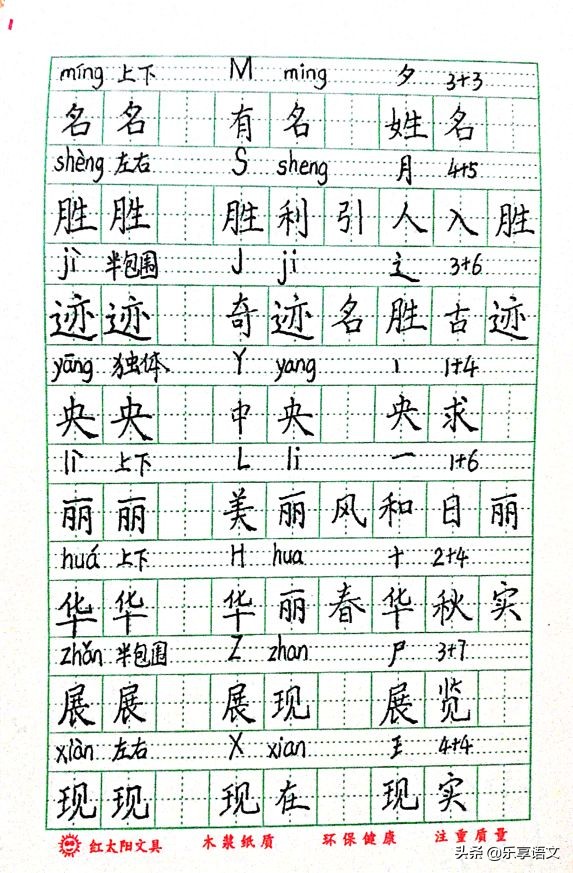 míng 上下 M ming 夕 3+3
名 名 有 名 姓 名
shèng 左右 S sheng 月 4+5
胜 胜 胜 利 引 人 入 胜
jì 半包围 J ji 辶 3+6
迹 迹 奇 迹 名 胜 古 迹
yāng 独体 Y yang 丨 1+4
央 央 中 央 央 求
lì 上下 L li 一 1+6
丽 丽 美 丽 风 和 日 丽
huá 上下 H hua 十 2+4
华 华 华 丽 春 华 秋 实
zhǎn 半包围 Z zhan 尸 3+7
展 展 展 现 展 览
xiàn 左右 X xian 王 4+4
现 现 现 在 现 实
红太阳文具 木浆纸质 环保健康 注重质量
头条@乐享语文